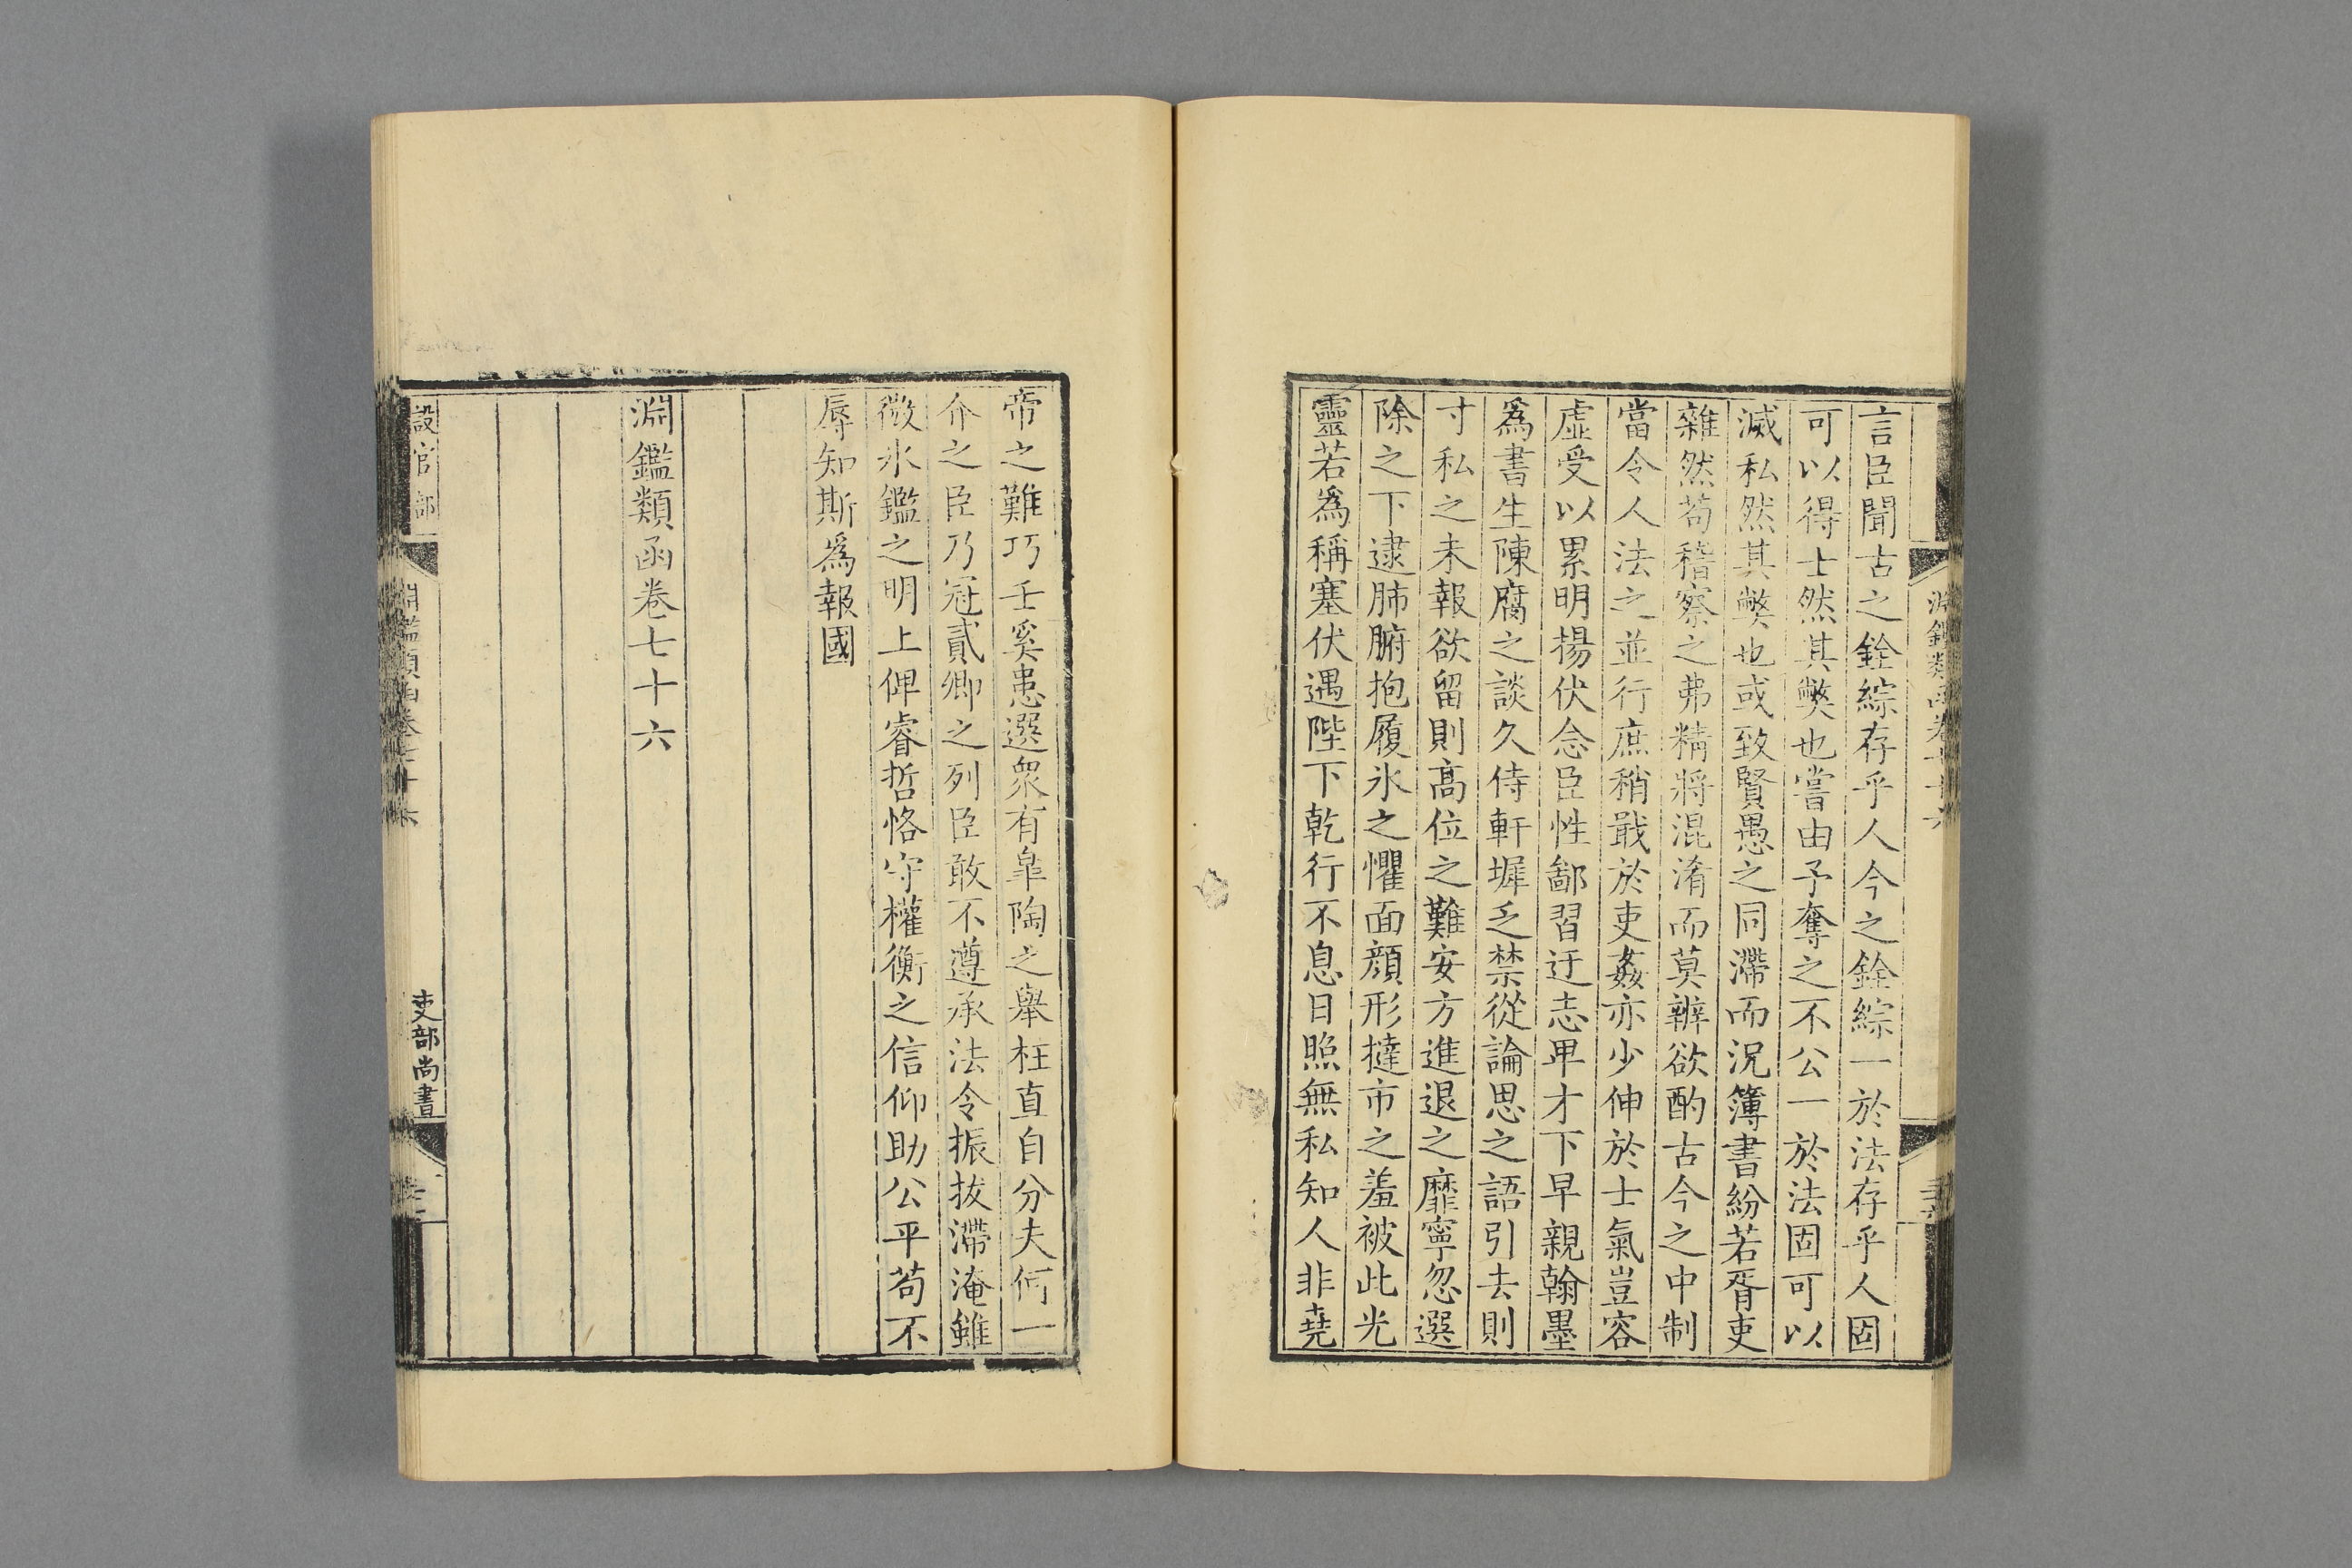 言臣聞古之銓綜存乎人今之銓綜一於法存乎人固
可以得士然其弊也嘗由予奪之不公一於法固可以
滅私然其弊也或致賢愚之同滯而況簿書紛若胥吏
雜然苟稽察之弗精將混淆而莫辨欲酌古今之中制
當令人法之並行庶稍戢於吏姦亦少伸於士氣豈容
虛受以累明揚伏念臣性鄙習迂志卑才下早親翰墨
爲書生陳腐之談久侍軒墀乏禁從論思之語引去則
寸私之未報欲留則高位之難安方進退之靡寧忽選
除之下逮肺腑抱履氷之懼面顔形撻市之羞被此光
靈若爲稱塞伏遇陛下乾行不息日照無私知人非堯
帝之難巧壬奚患選衆有臯陶之舉枉直自分夫何一
介之臣乃冠貳卿之列臣敢不遵承法令振拔滯淹雖
微氷鑑之明上俾睿哲恪守權衡之信仰助公平苟不
辱知斯爲報國
淵鑑類函卷七十六
設官部
淵鑑類函卷七十六
吏部尚書